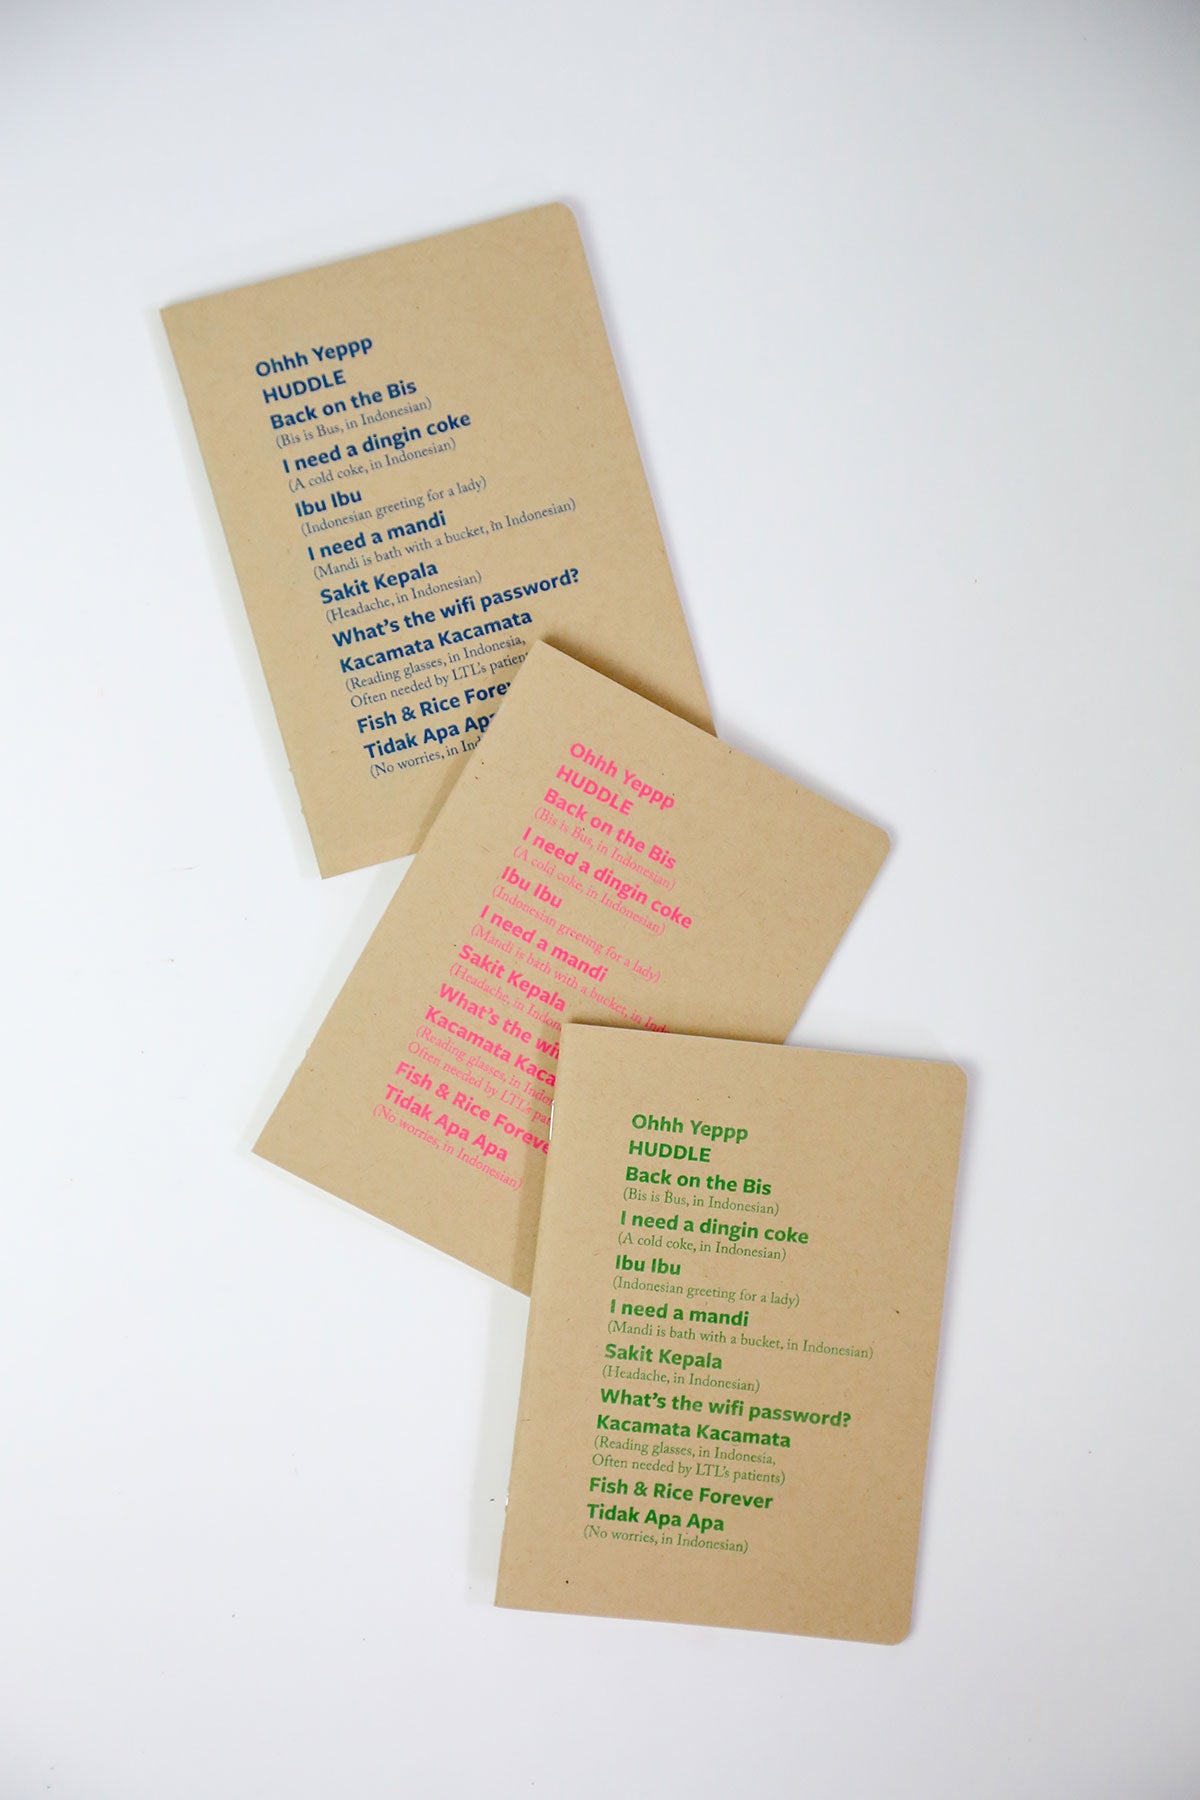 Ohhh Yeppp
HUDDLE
Back on the Bis
(Bis is Bus, in Indonesian)
I need a dingin coke
(A cold coke, in Indonesian)
Ibu Ibu
(Indonesian greeting for a lady)
I need a mandi
(Mandi is bath with a bucket, in Indonesian)
Sakit Kepala
(Headache, in Indonesian)
What's the wifi password?
Kacamata Kacamata
(Reading glasses, in Indonesia,
Often needed by LTL's
Fish & Rice
Tidak Apa
(No worries, in
Ohhh Yeppp
HUDDLE
Back on the Bis
(Bis is Bus, in Indonesian)
I need a dingin coke
(A cold coke, in Indonesian)
Ibu Ibu
(Indonesian greeting for a lady)
I need a mandi
(Mandi is bath with a bucket, in
Sakit Kepala
(Headache, in
What's the
Kacamata
(Reading glasses, in
Often needed by LTL's
Fish & Rice
Tidak Apa Apa
(No worries, in Indonesian)
Ohhh Yeppp
HUDDLE
Back on the Bis
(Bis is Bus, in Indonesian)
I need a dingin coke
(A cold coke, in Indonesian)
Ibu Ibu
(Indonesian greeting for a lady)
I need a mandi
(Mandi is bath with a bucket, in Indonesian)
Sakit Kepala
(Headache, in Indonesian)
What's the wifi password?
Kacamata Kacamata
(Reading glasses, in Indonesia,
Often needed by LTL's patients)
Fish & Rice Forever
Tidak Apa Apa
(No worries, in Indonesian)